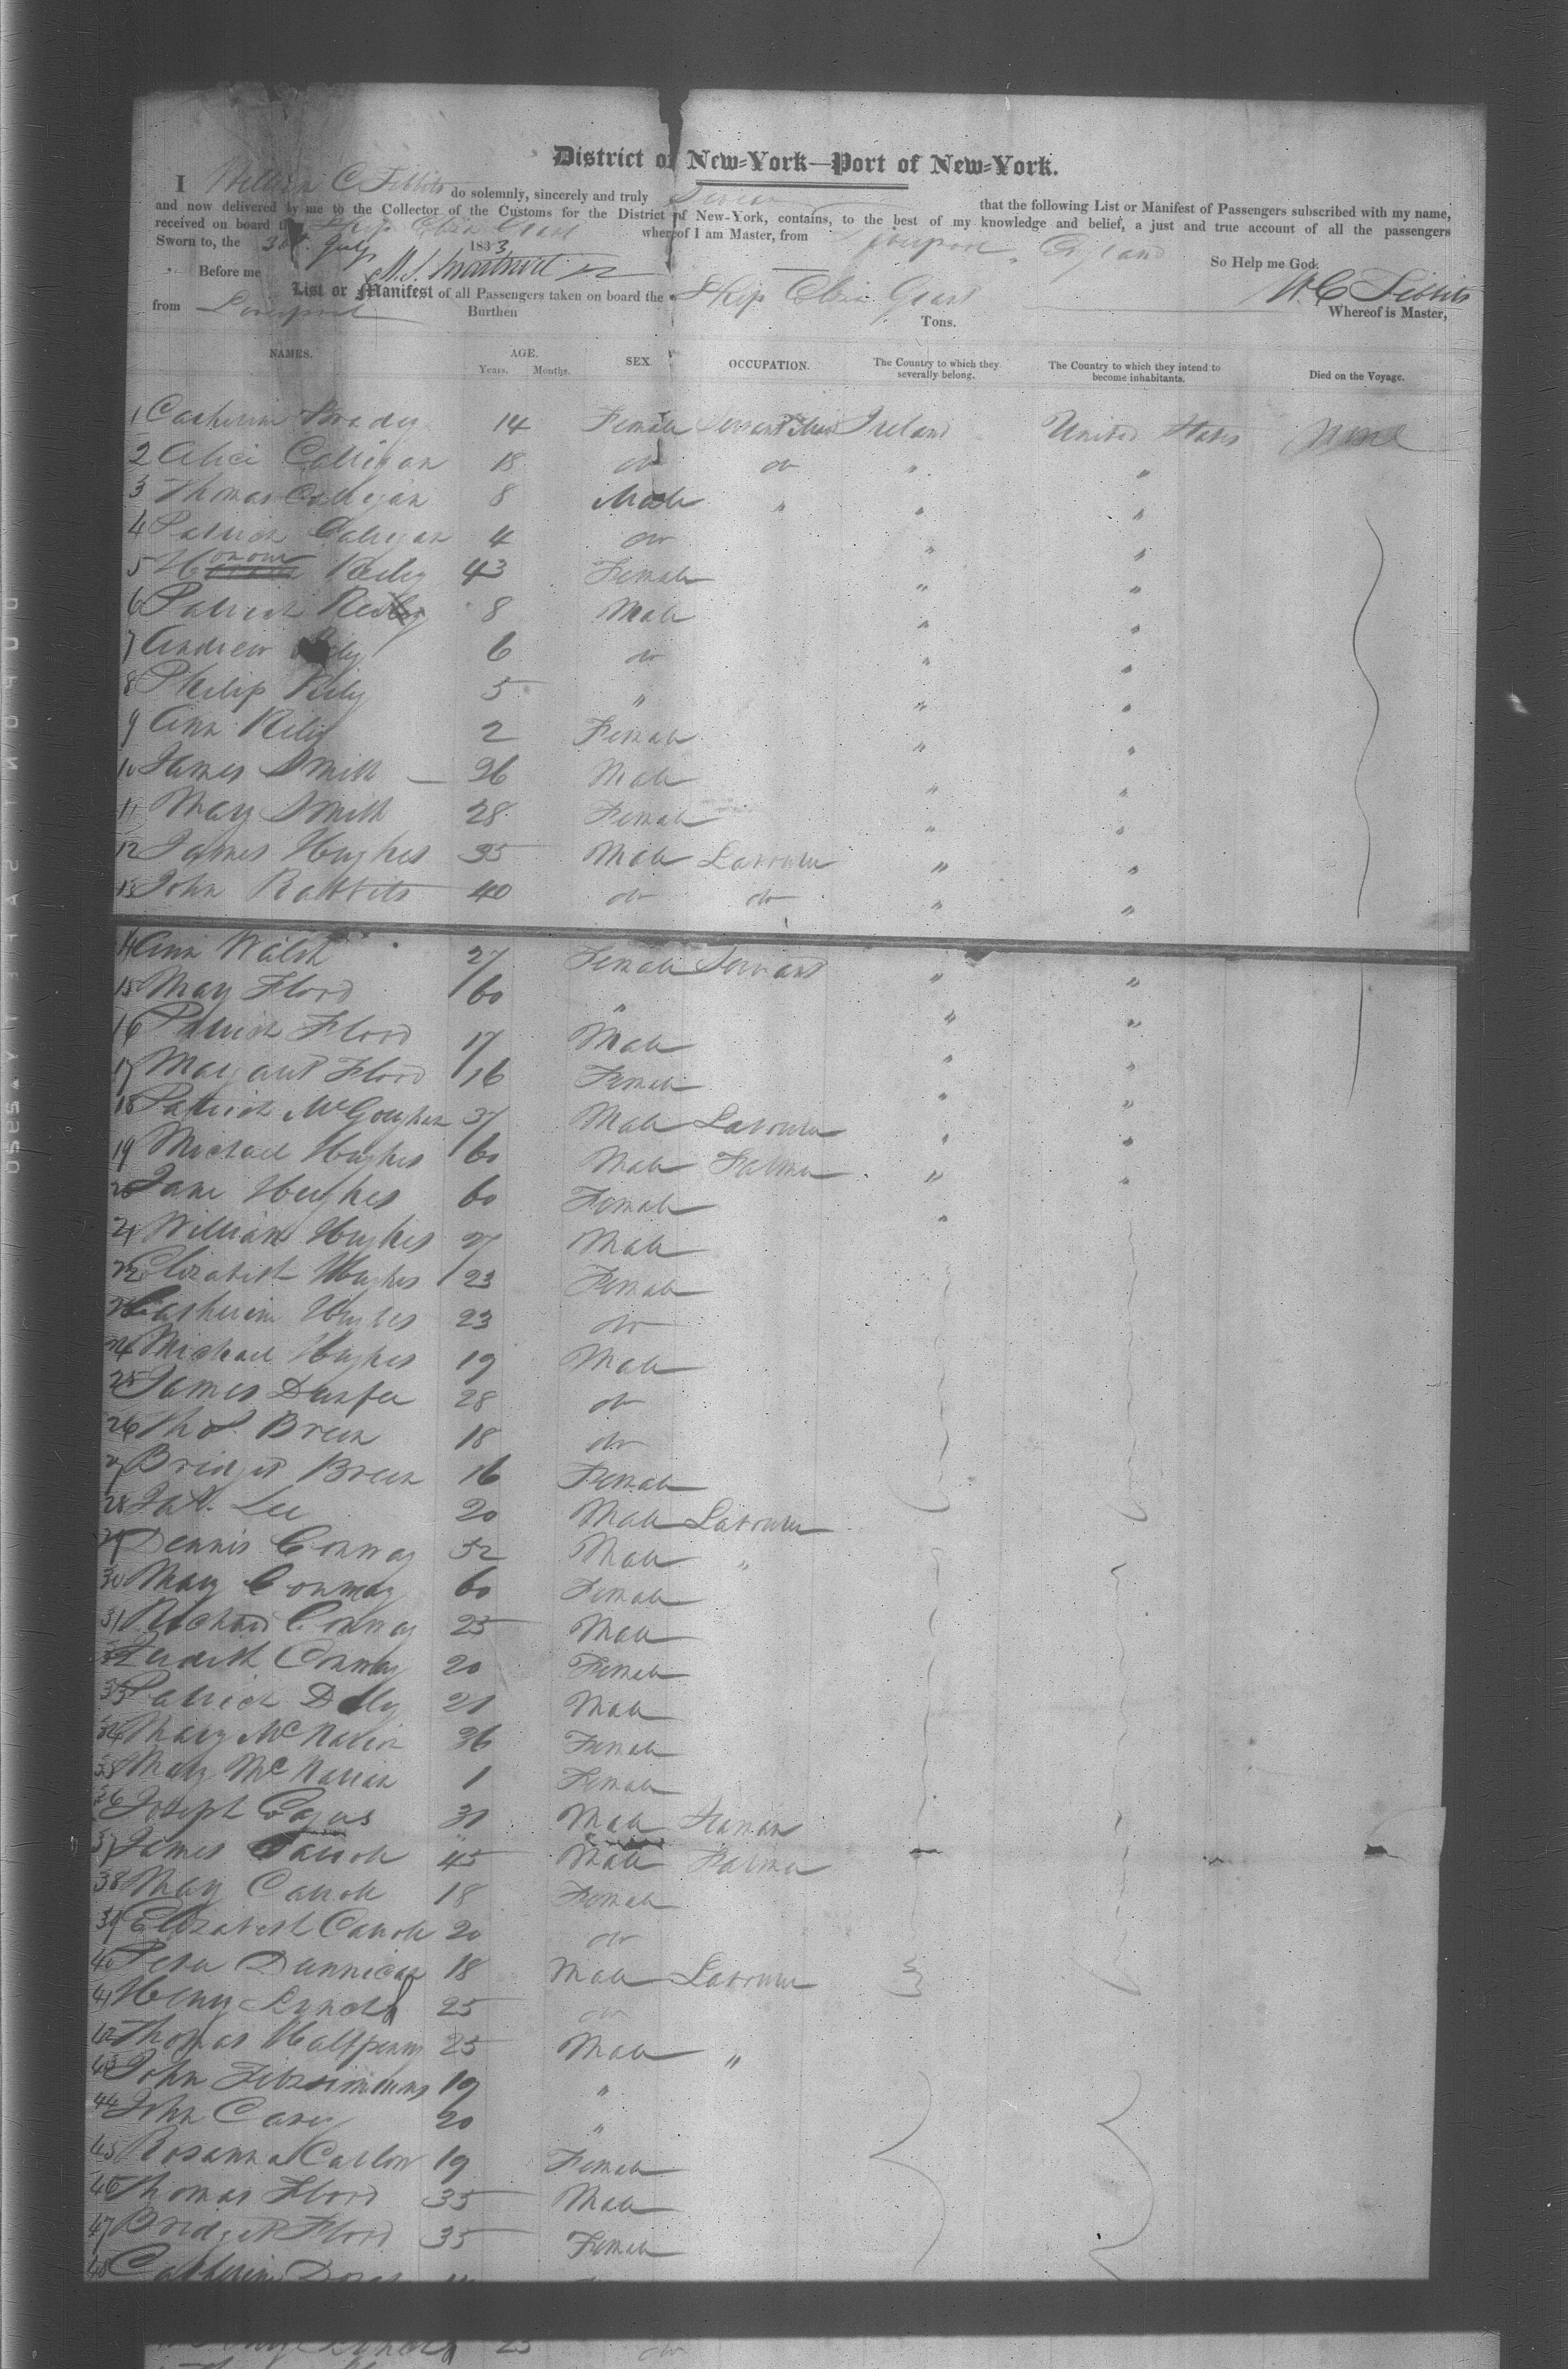 District of New-York—Port of New-York.
I William C Tibbits do solemnly, sincerely and truly Swear that the following List or Manifest of Passengers subscribed with my name,
and now delivered by me to the Collector of the Customs for the District of New-York, contains, to the best of my knowledge and belief, a just and true account of all the passengers
received on board the Ship whereof I am Master, from Liverpool, England
Sworn to, the July 1833 So Help me God.
Before me W C Tibbits
List or Manifest of all Passengers taken on board the Ship Whereof is Master,
from Liverpool Burthen Tons.
NAMES. AGE. SEX OCCUPATION. The Country to which they severally belong. The Country to which they intend to become inhabitants. Died on the Voyage.
Years. Months.
1 Catherine Brady 14 Female Servant Ireland United States None
2 Alice Calligan 18 do do " "
3 Thomas Calligan 8 Male " " "
4 Patrick Calligan 4 do " "
5 Honour Reily 43 Female " "
6 Patrick Reily 8 Male " "
7 Andrew 6 do " "
8 Philip Rily 5 " " "
9 Ann Rily 2 Female " "
10 James Smith 36 Male " "
11 Mary Smith 28 Female " "
12 James Hughes 35 Male Labourer " "
13 John Rabbits 40 do do " "
14 Ann Walsh 27 Female Servant " "
15 Mary Flood 60 " " "
16 Patrick Flood 17 Male " "
17 Margaret Flood 16 Female " "
18 Patrick 37 Male Labourer " "
19 Michael Hughes 60 Male Farmer " "
20 Jane Hughes 60 Female "
21 William Hughes 27 Male
22 Elizabeth Hughes 23 Female
23 Catherine Hughes 23 do
24 Michael Hughes 19 Male
25 James 28 do
26 Thos. Breen 18 do
27 Bridget Breen 16 Female
28 Lee 20 Male Labourer
29 Dennis Conway 52 Male "
30 Mary Conway 60 Female
31 Richard Conway 25 Male
32 Judith Conway 20 Female
33 Patrick 21 Male
34 Mary 36 Female
35 Mary 1 Female
36 Joseph 31 Male
37 James Carrole 45 Male Farmer
38 Mary Carrole 18 Female
39 Elizabeth Carrole 20 do
40 Peter Dunnican 18 Male Labourer
41 Henry Lynch 25 do
42 Thomas Halfpenny 25 Male "
43 John Fitzsimmons 19 "
44 John Casey 20 "
45 Rosanna Carlon 19 Female
46 Thomas Flood 35 Male
47 Bridget Flood 35 Female
48 Catherine